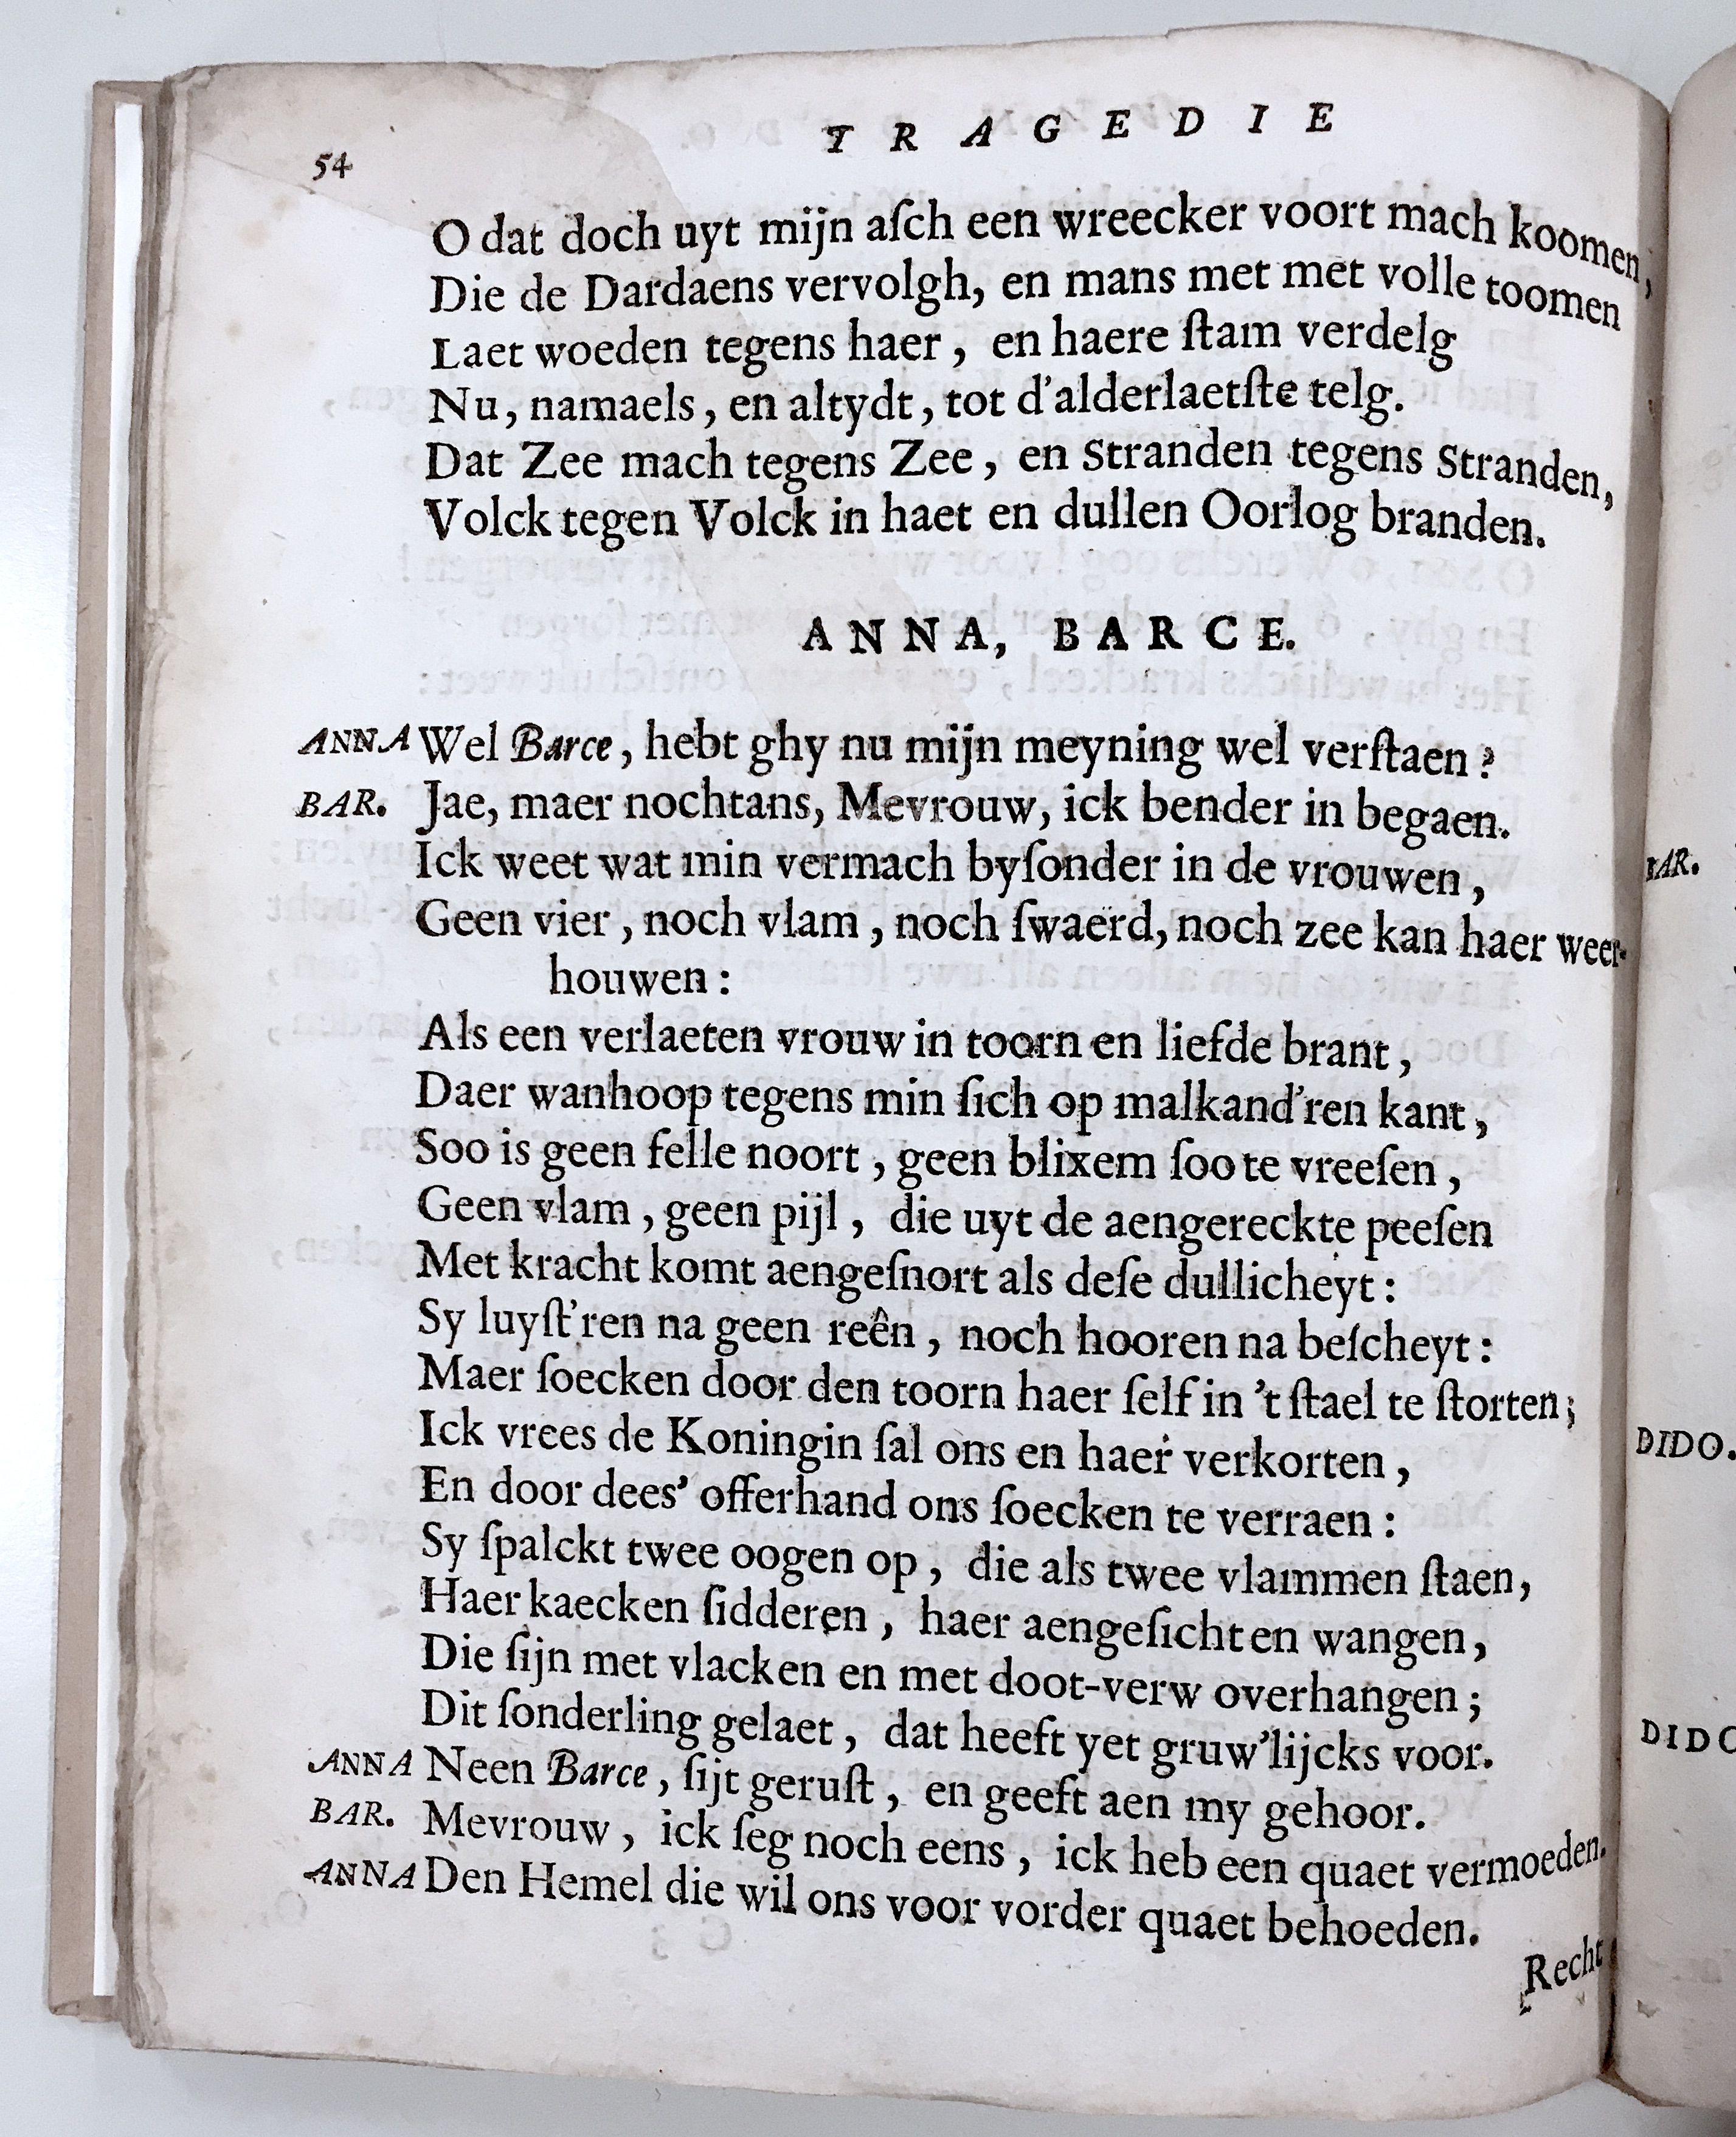 54
TRAGEDIE
O dat doch uyt mijn aſch een wreecker voort mach koomen,
Die de Dardaens vervolgh, en mans met met volle toomen
Laet woeden tegens haer, en haere ſtam verdelg
Nu, namaels, en altydt, tot d'alderlaetſte telg.
Dat Zee mach tegens Zee, en Stranden tegens Stranden,
Volck tegen Volck in haet en dullen Oorlog branden.
ANNA, BARCE.
ANNA Wel Barce, hebt ghy nu mijn meyning wel verſtaen?
BAR. Jae, maer nochtans, Mevrouw, ick bender in begaen.
Ick weet wat min vermach byſonder in de vrouwen,
Geen vier, noch vlam, noch ſwaerd, noch zee kan haer weer-
houwen:
Als een verlaeten vrouw in toorn en liefde brant,
Daer wanhoop tegens min ſich op malkand'ren kant,
Soo is geen felle noort, geen blixem ſoo te vreeſen,
Geen vlam, geen pijl, die uyt de aengereckte peeſen
Met kracht komt aengeſnort als deſe dullicheyt:
Sy luyſt'ren na geen reên, noch hooren na beſcheyt:
Maer ſoecken door den toorn haer ſelf in 't ſtael te ſtorten;
Ick vrees de Koningin ſal ons en haer verkorten,
En door dees' offerhand ons ſoecken te verraen:
Sy ſpalckt twee oogen op, die als twee vlammen ſtaen,
Haer kaecken ſidderen, haer aengeſicht en wangen,
Die ſijn met vlacken en met doot-verw overhangen;
Dit ſonderling gelaet, dat heeft yet gruw'lijcks voor.
ANNA Neen Barce, ſijt geruſt, en geeft aen my gehoor.
BAR. Mevrouw, ick ſeg noch eens, ick heb een quaet vermoeden.
ANNA Den Hemel die wil ons voor vorder quaet behoeden.
Recht
BAR.
DIDO.
DIDO